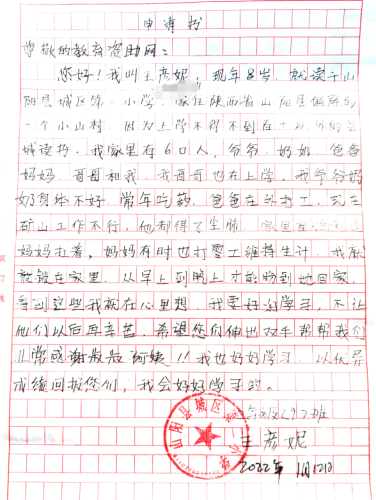 申请书
尊敬的教育资助网：
您好！我叫王彦妮，现年8岁，就读于山
阳县城区第一小学，家住陕西省山阳县偏僻的
一个小山村，因为上学不得不到百十以外的县
城读书，我家里有6口人，爷爷、奶奶、爸爸
妈妈、哥哥和我，我哥哥也在上学，我爷爷奶
奶身体不好，常年吃药，爸爸在外打工，现在
矿山工作不行，他都得了尘肺，家里
妈妈拉着，妈妈有时也打零工维持生计，我
在家里，从早上到晚上才能够到地回家，
看到这些我就在心里想，我要好好学习，不让
他们以后再辛苦，希望您们伸出双手帮帮我们
非常感谢叔叔阿姨！！我也好好学习，以优异
成绩回报您们，我会好好学习的。
山阳县城区第一小学
王彦妮
2022年1月12日